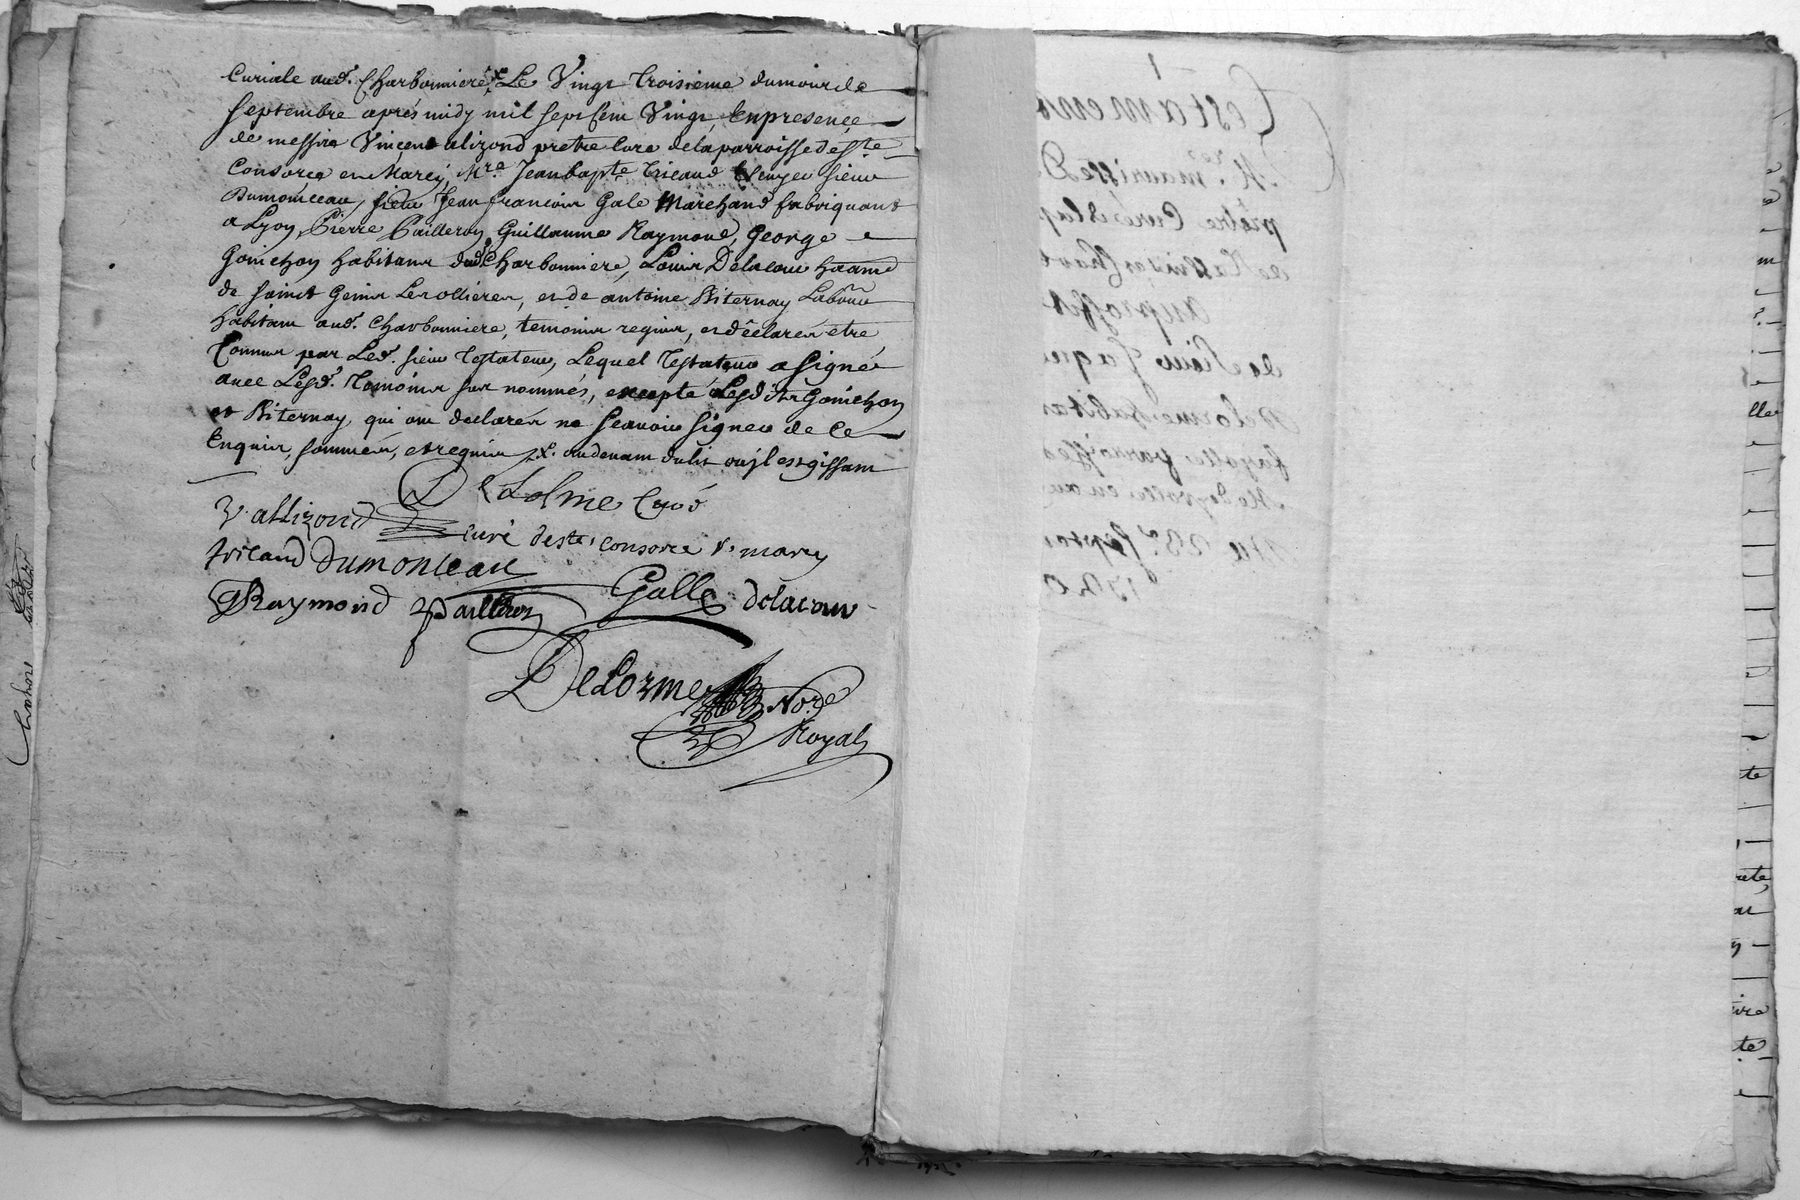 Curiale aud.t Charbonniere x Le Vingt Troisieme du mois de
septembre aprés midy mil sept cent Vingt, En presence
de messire Vincent alizond pretre Curé de la parroisse de Ste
Consorce en Marcy, Mre Jean bapte Tricaud Ecuyer sieur
Dumonceau, sieur Jean francois Gale Marchand fabriquant
a Lyon, Pierre Pailleron Guillaume Raymond, George
Gonichon habitans dud.t Charbonniere, Louis Delacour
de saint Genis Lesollieres, et de antoine Biternay Laboureur
habitant aud.t Charbonniere, temoins requis, et déclarés etre
Connus par Led.t sieur Testateur, Lequel Testateur a signé
avec Lesd.t Temoins sus nommés, excepté Lesdits Gonichon
et Biternay, qui ont declarés ne sçavoir signer de Ce
Enquis, sommés, et requis x. au devant du lit ou jl est gissant
Delolme Curé
V. allizond
curé de ste consorce & marcy
tricaud Dumonceau
GRaymond Pailleron Galle delacour
DeLorme No.re
Royal
Testament
Mre maurisse D
prêtre Curé de la p
de Charb
au proffit
de sieur Jaque
Delorme habitan
parroisse
Du 23e. septem
1720